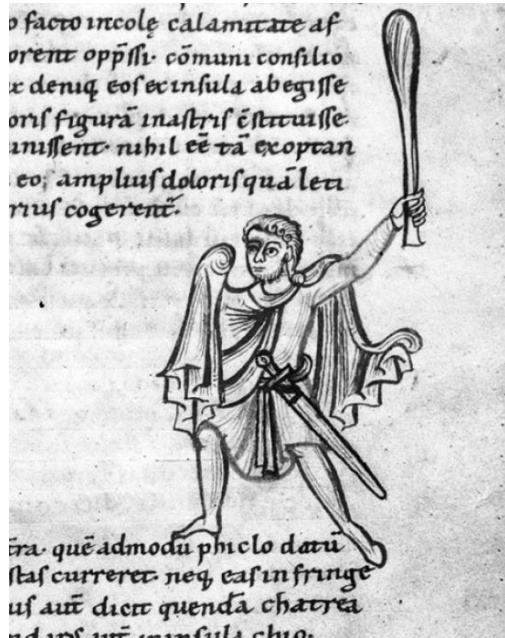 o facto incolę calamitate af
orent opp̄ssi. cōmuni consilio
denıq eos ex insula abegisse
oris figurā in astris c̄stituisse.
nissent. nihil eē tā exoptan
eo; amplius doloris quā leti
rius cogerent̄.
tra. quē admodū phiclo datū
curreret. neq, eas in fringe
us aut̄ dicit quendā chatrea
insula chio.